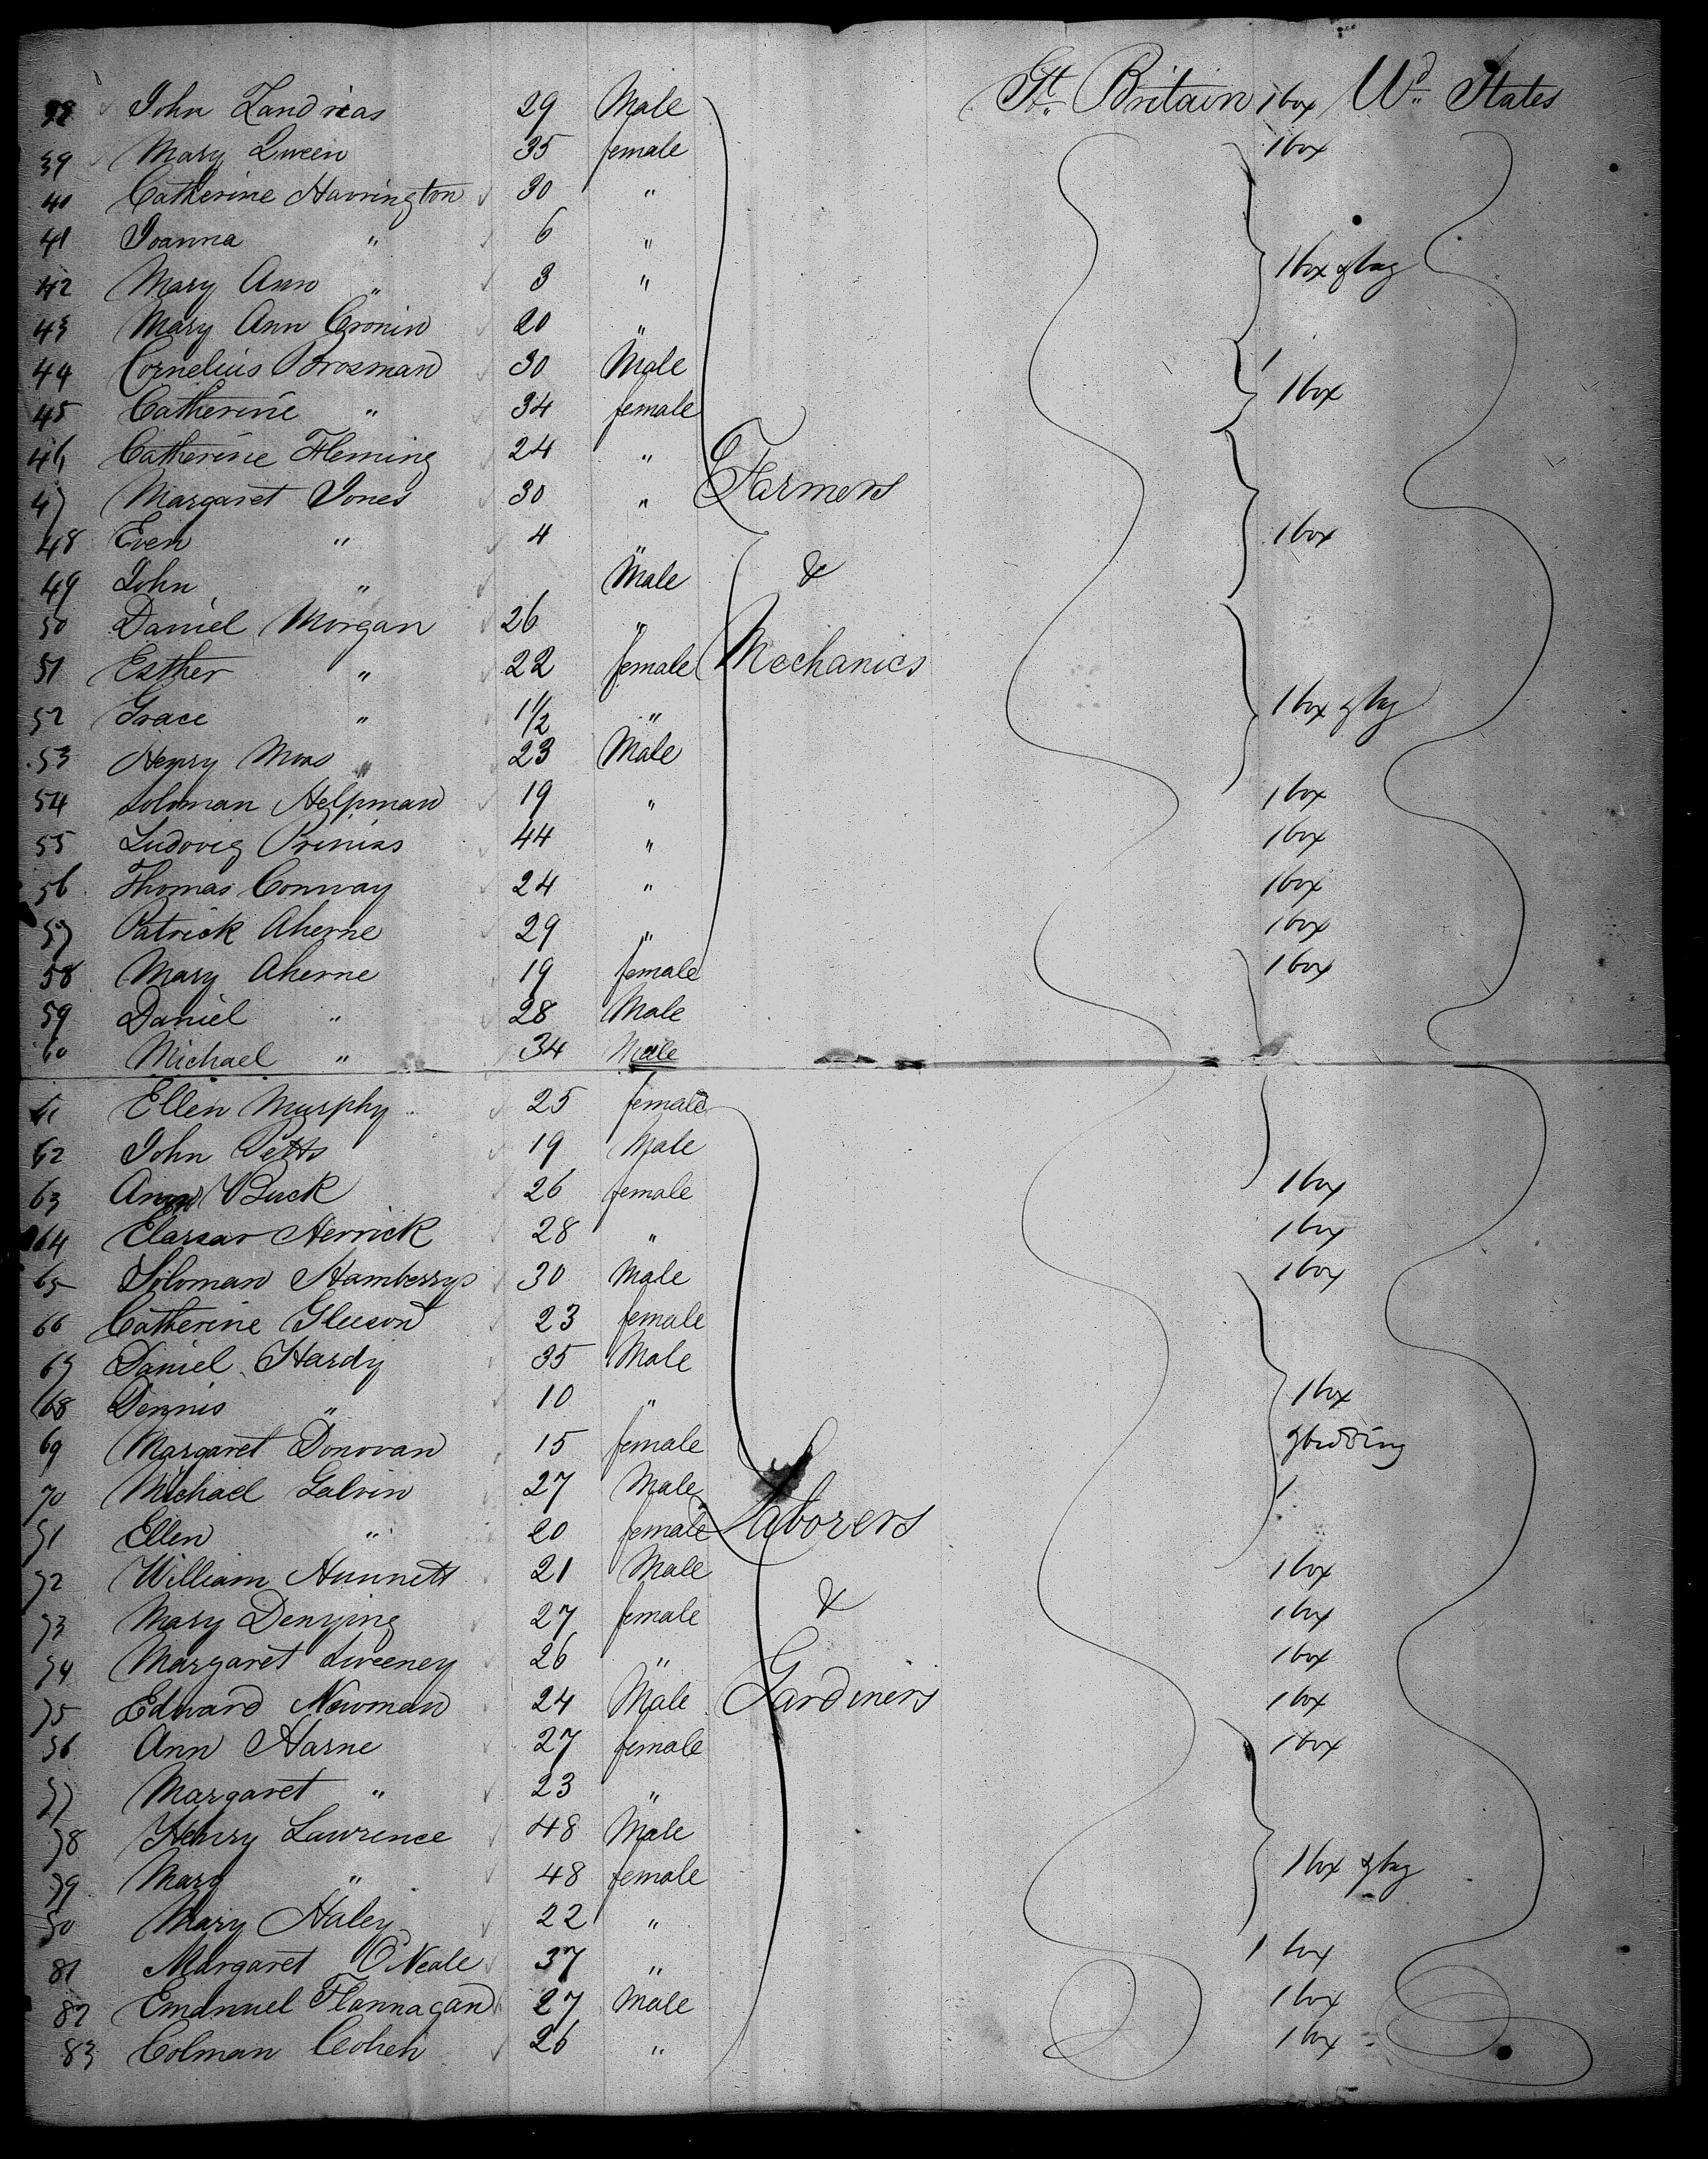 38 John Landrias 29 Male Gt. Britain 1 box Ud. States
39 Mary Queen 35 female 1 box
40 Catherine Harrington 30 "
41 Joanna " 6 "
42 Mary Ann " 3 " 1 box & bag
43 Mary Ann Cronin 20 "
44 Cornelius Brosman 30 Male 1
45 Catherine " 34 female 1 box
46 Catherine Fleming 24 "
47 Margaret Jones 30 " Farmers
48 Even " 4 " 1 box
49 John " Male &
50 Daniel Morgan 26 "
51 Esther " 22 female Mechanics
52 Grace " 1 1/2 " 1 box & bag
53 Henry Moss " 23 Male
54 Soloman Helpman 19 " 1 box
55 Ludovig 44 " 1 box
56 Thomas Conway 24 " 1 box
57 Patrick Aherne 29 " 1 box
58 Mary Aherne 19 female 1 box
59 Daniel " 28 Male
60 Michael " 34 Male
61 Ellen Murphy 25 female
62 John Petts 19 Male
63 Ann Buck 26 female 1 box
64 Herrick 28 " 1 box
65 Soloman 30 Male 1 box
66 Catherine Gleeson 23 female
67 Daniel Hardy 35 Male
68 Dennis " 10 " 1 box
69 Margaret Donovan 15 female & bedding
70 Michael Galvin 27 Male 1
71 Ellen " 20 female Laborers
72 William Hunnett 21 Male 1 box
73 Mary Denying 27 female & 1 box
74 Margaret Sweeney 26 " 1 box
75 Edward Newman 24 Male Gardiners 1 box
76 Ann Harne 27 female 1 box
77 Margaret " 23 "
78 Henry Lawrence 48 Male
79 Mary " 48 female 1 box & bag
80 Mary Haley 22 "
81 Margaret O'Neale 37 " 1 box
82 Emanuel Flannagan 27 Male 1 box
83 Colman Cohen 26 " 1 box